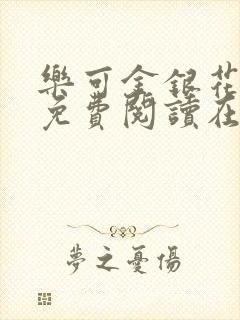 樂可金銀花
免費閱讀在
夢之憂傷